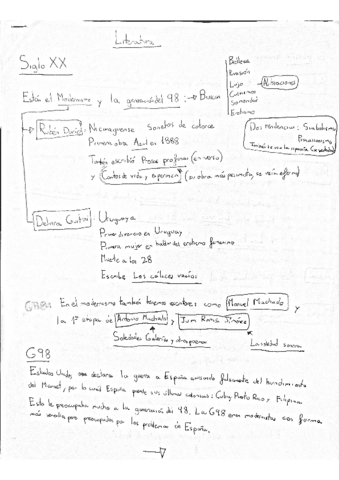 Literatura
Siglo XX
Están el Modernismo y la generación del 98: → Buscan
Belleza
Evasión
Lujo → Aliteraciones
Exotismo
Erotismo
Dos tendencias: Simbolismo
Parnasianismo
Rubén Darío: Nicaragüense Sonetos de colores
Primera obra Azul en 1888
También escribió Prosas profanas (en verso)
y Cantos de vida y esperanza (su obra más
Delmira Agustini: Uruguaya
Primer divorcio en Uruguay
Primera mujer en hablar del erotismo femenino
Muere a los 28
Escribe Los cálices vacíos
G98: En el modernismo también tenemos escritores como Manuel Machado y
la 1ª etapa de Antonio Machado y Juan Ramón Jiménez
Soledades Galerías y otros poemas
La soledad sonora
G98
Estados Unidos declara la guerra a España acusando falsamente del hundimiento
del Maine, por lo cual España pierde sus últimas colonias: Cuba, Puerto Rico y Filipinas
Esto le preocupaba mucho a la generación del 98. Los G98 eran modernistas con forma
más sencilla pero preocupados por los problemas de España.